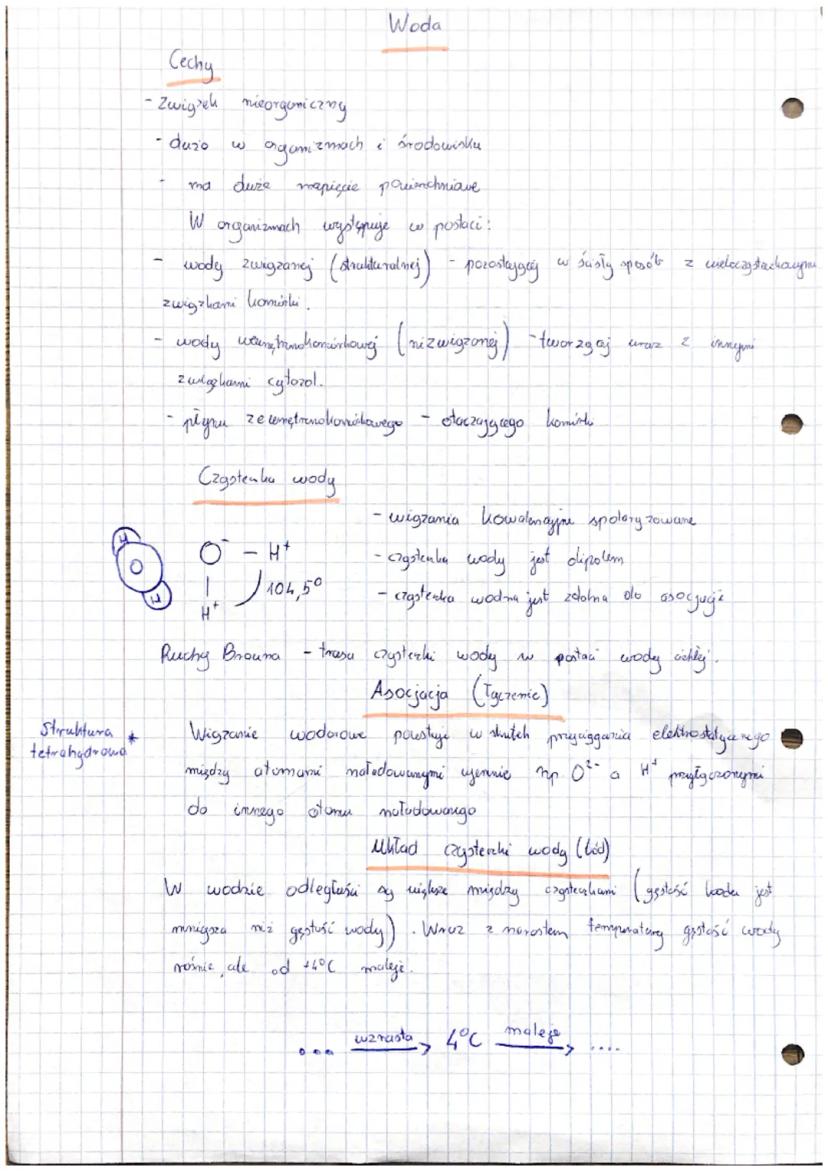 Woda
Cechy
- Związek nieorganiczny
- dużo w organizmach i środowisku
- ma duże napięcie powierzchniowe
W organizmach występuje w postaci:
- wody związanej (strukturalnej) - pozostającej w ścisły sposób z wielocząsteczkowymi
związkami komórki.
- wody wewnątrzkomórkowej (niezwiązanej) - tworzącej wraz z innymi
związkami cytozol.
- płynu zewnętrznokomórkowego - otaczającego komórki
Cząsteczka wody
- wiązania kowalencyjne spolaryzowane
H
O
H
O⁻ - H⁺
- cząsteczka wody jest dipolem
| 104,5°
- cząsteczka wodna jest zdolna do asocjacji
H⁺
Ruchy Browna - trasa cząsteczki wody w postaci wody ciekłej.
Asocjacja (Łączenie)
Struktura *
tetrahydrowa
Wiązanie wodorowe powstaje w skutek przyciągania elektrostatycznego
między atomami naładowanymi ujemnie np O²⁻ a H⁺ przyłączonymi
do innego atomu naładowanego
Układ cząsteczki wody (lód)
W wodzie odległości są większe między cząsteczkami (gęstość lodu jest
mniejsza niż gęstość wody). Wraz z narostem temperatury gęstość wody
rośnie, ale od +4°C maleje.
... wzrasta → 4°C maleje → ....